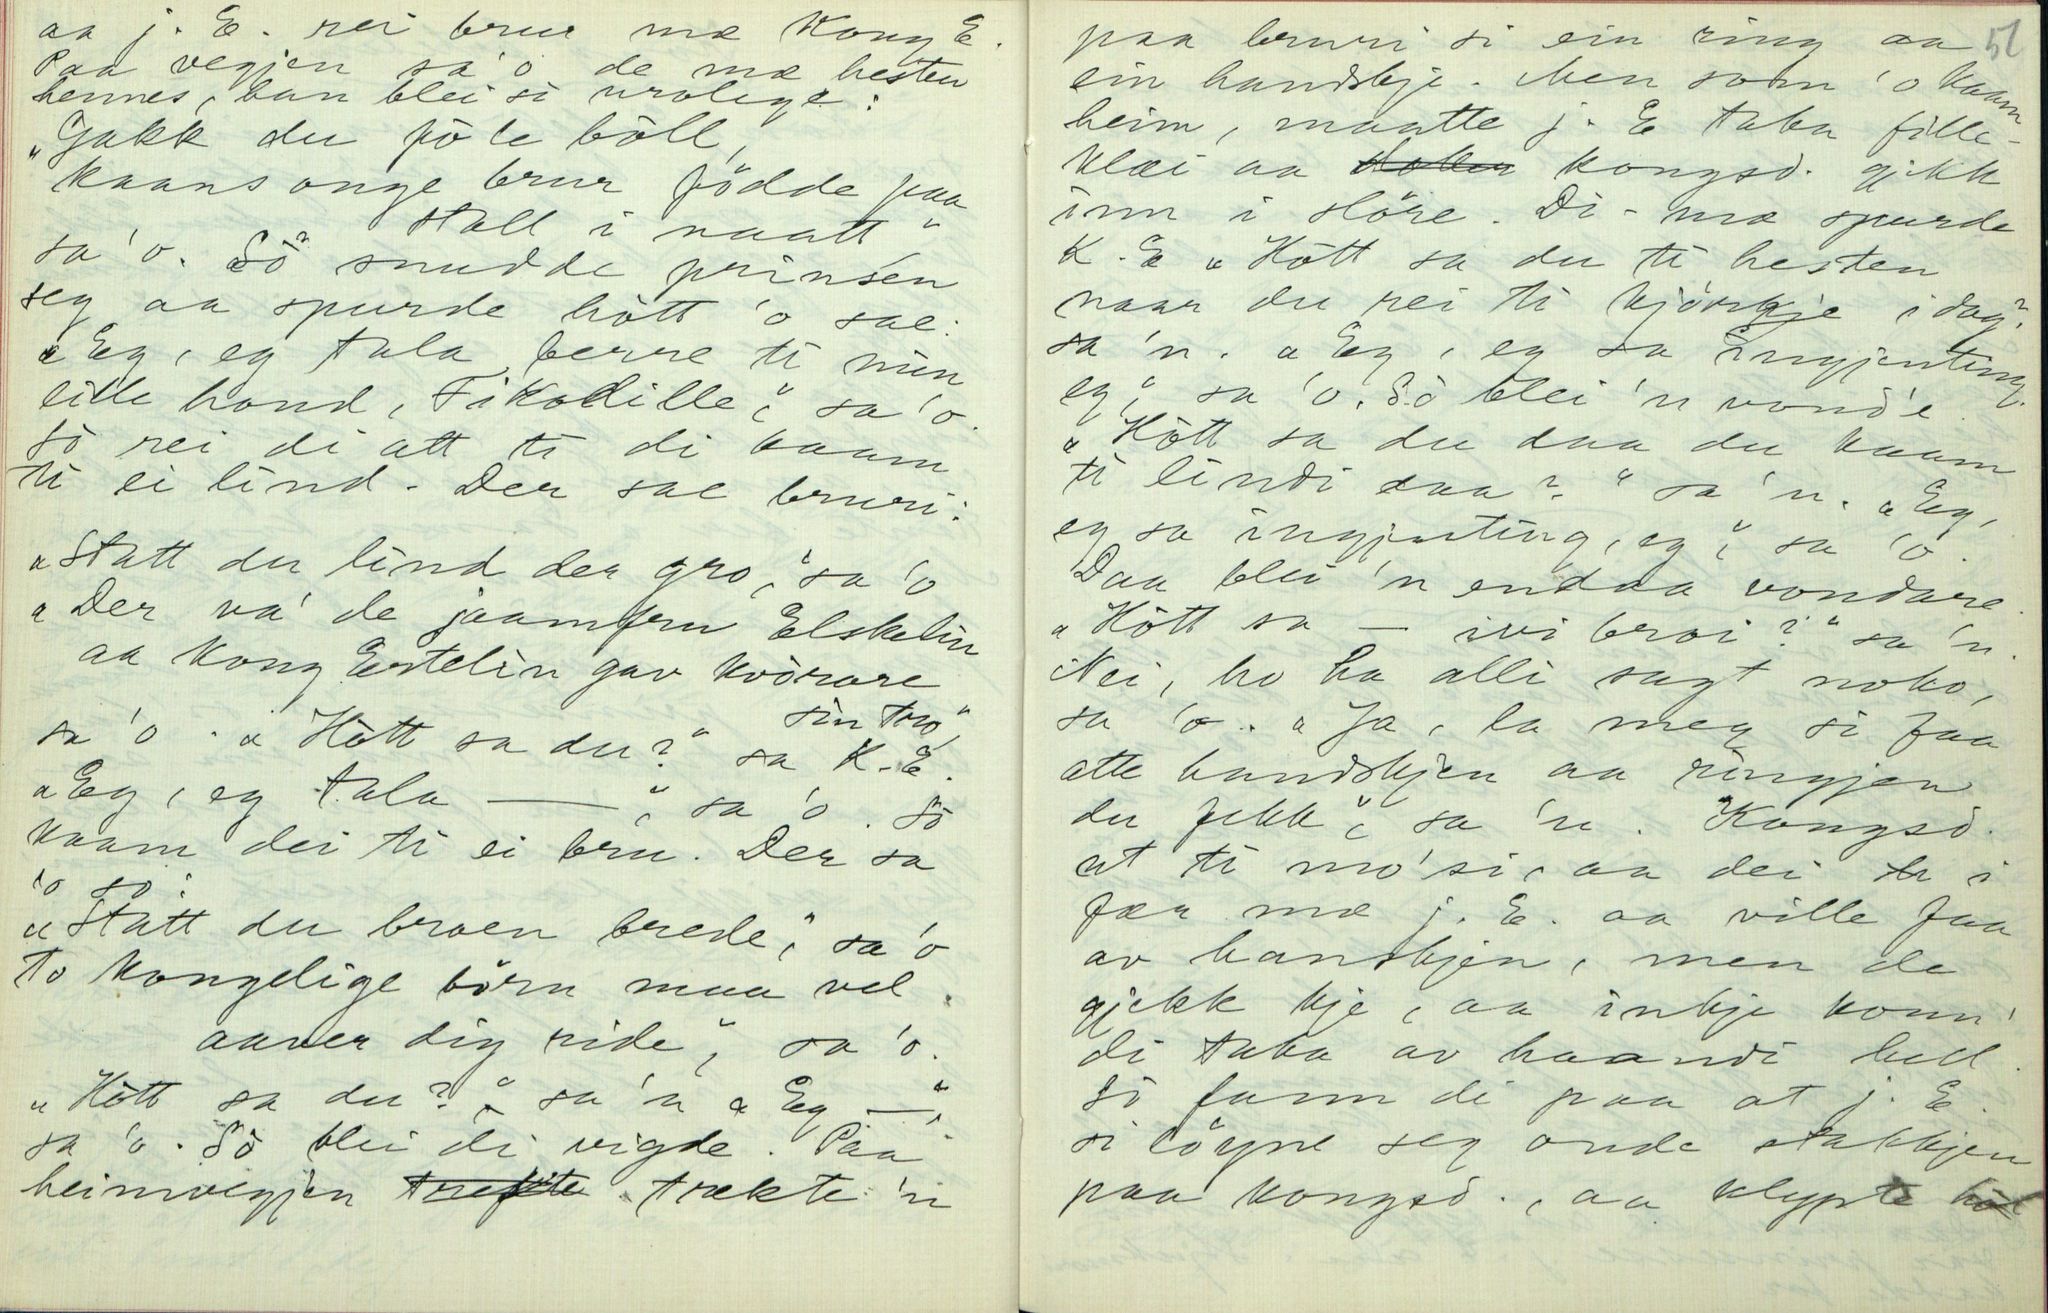 aa j. E. rei brur mæ Kong E.
Paa vegjen sa 'o de mæ hesten
hennes, han blei så urolege:
"Gakk du fôle bôll,
kaans onge brur födde paa
stall i naatt"
sa 'o. Sô snudde prinsen
seg aa spurde hôtt 'o sae:
"Eg, eg tala berre ti min
lille hond, Fikodille", sa 'o.
Sô rei di att ti di kaam
ti ei lind. Der sae bruri:
"Statt du lind der gro," sa 'o
"Der va' de jaamfru Elskelin
aa Kong Estelin gav kvörare
sin tro",
sa 'o. "Hôtt sa du?" sa K.E.
"Eg, eg tala —", sa 'o. Sô
kaam dei ti ei bru. Der sa
'o so:
"Statt du broen brede," sa 'o
to kongelige börn maa vel
aaver dig ride", sa 'o.
"Hôtt sa du?" sa 'n "Eg —",
sa 'o. Sô blei di vigde. Paa
heimvegjen trækte 'n
51
paa bruri si ein ring aa
ein handskje. Men som 'o kaam
heim, maatte j. E taka fille-
klæi aa kongsd. gjikk
inn i slöre. Di-mæ spurde
K. E "Hôtt sa du ti hesten
naar du rei ti kjörkje idag?"
sa 'n. "Eg, eg sa ingjenting,
eg", sa 'o. Sô blei 'n vond'e.
"Hôtt sa du daa du kaam
ti lindi daa?" sa 'n. "Eg,
eg sa ingjenting, eg", sa 'o.
Daa blei 'n endaa vondare.
"Hôtt sa — ivi broi?" sa 'n.
Nei, ho ha alli sagt noko,
sa 'o. "Ja, la meg si faa
atte handskjen aa ringjen
du fekk", sa 'n. Kongsd.
ut ti mo'si, aa dei i
fær mæ j. E. aa ville faa
av hanskjen, men de
gjekk kje, aa inkje konn'
di taka av haandi hell.
Sô fann di paa at j. E.
si löyne seg onde stakkjen
paa kongsd., aa klypte